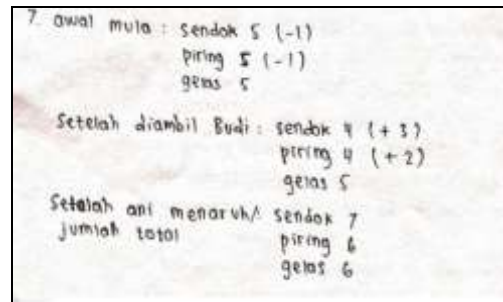 7. awal mula : sendok 5 (-1)
piring 5 (-1)
gelas 5
Setelah diambil Budi : sendok 4 (+3)
piring 4 (+2)
gelas 5
Setelah ani menaruh/ sendok 7
jumlah total piring 6
gelas 6